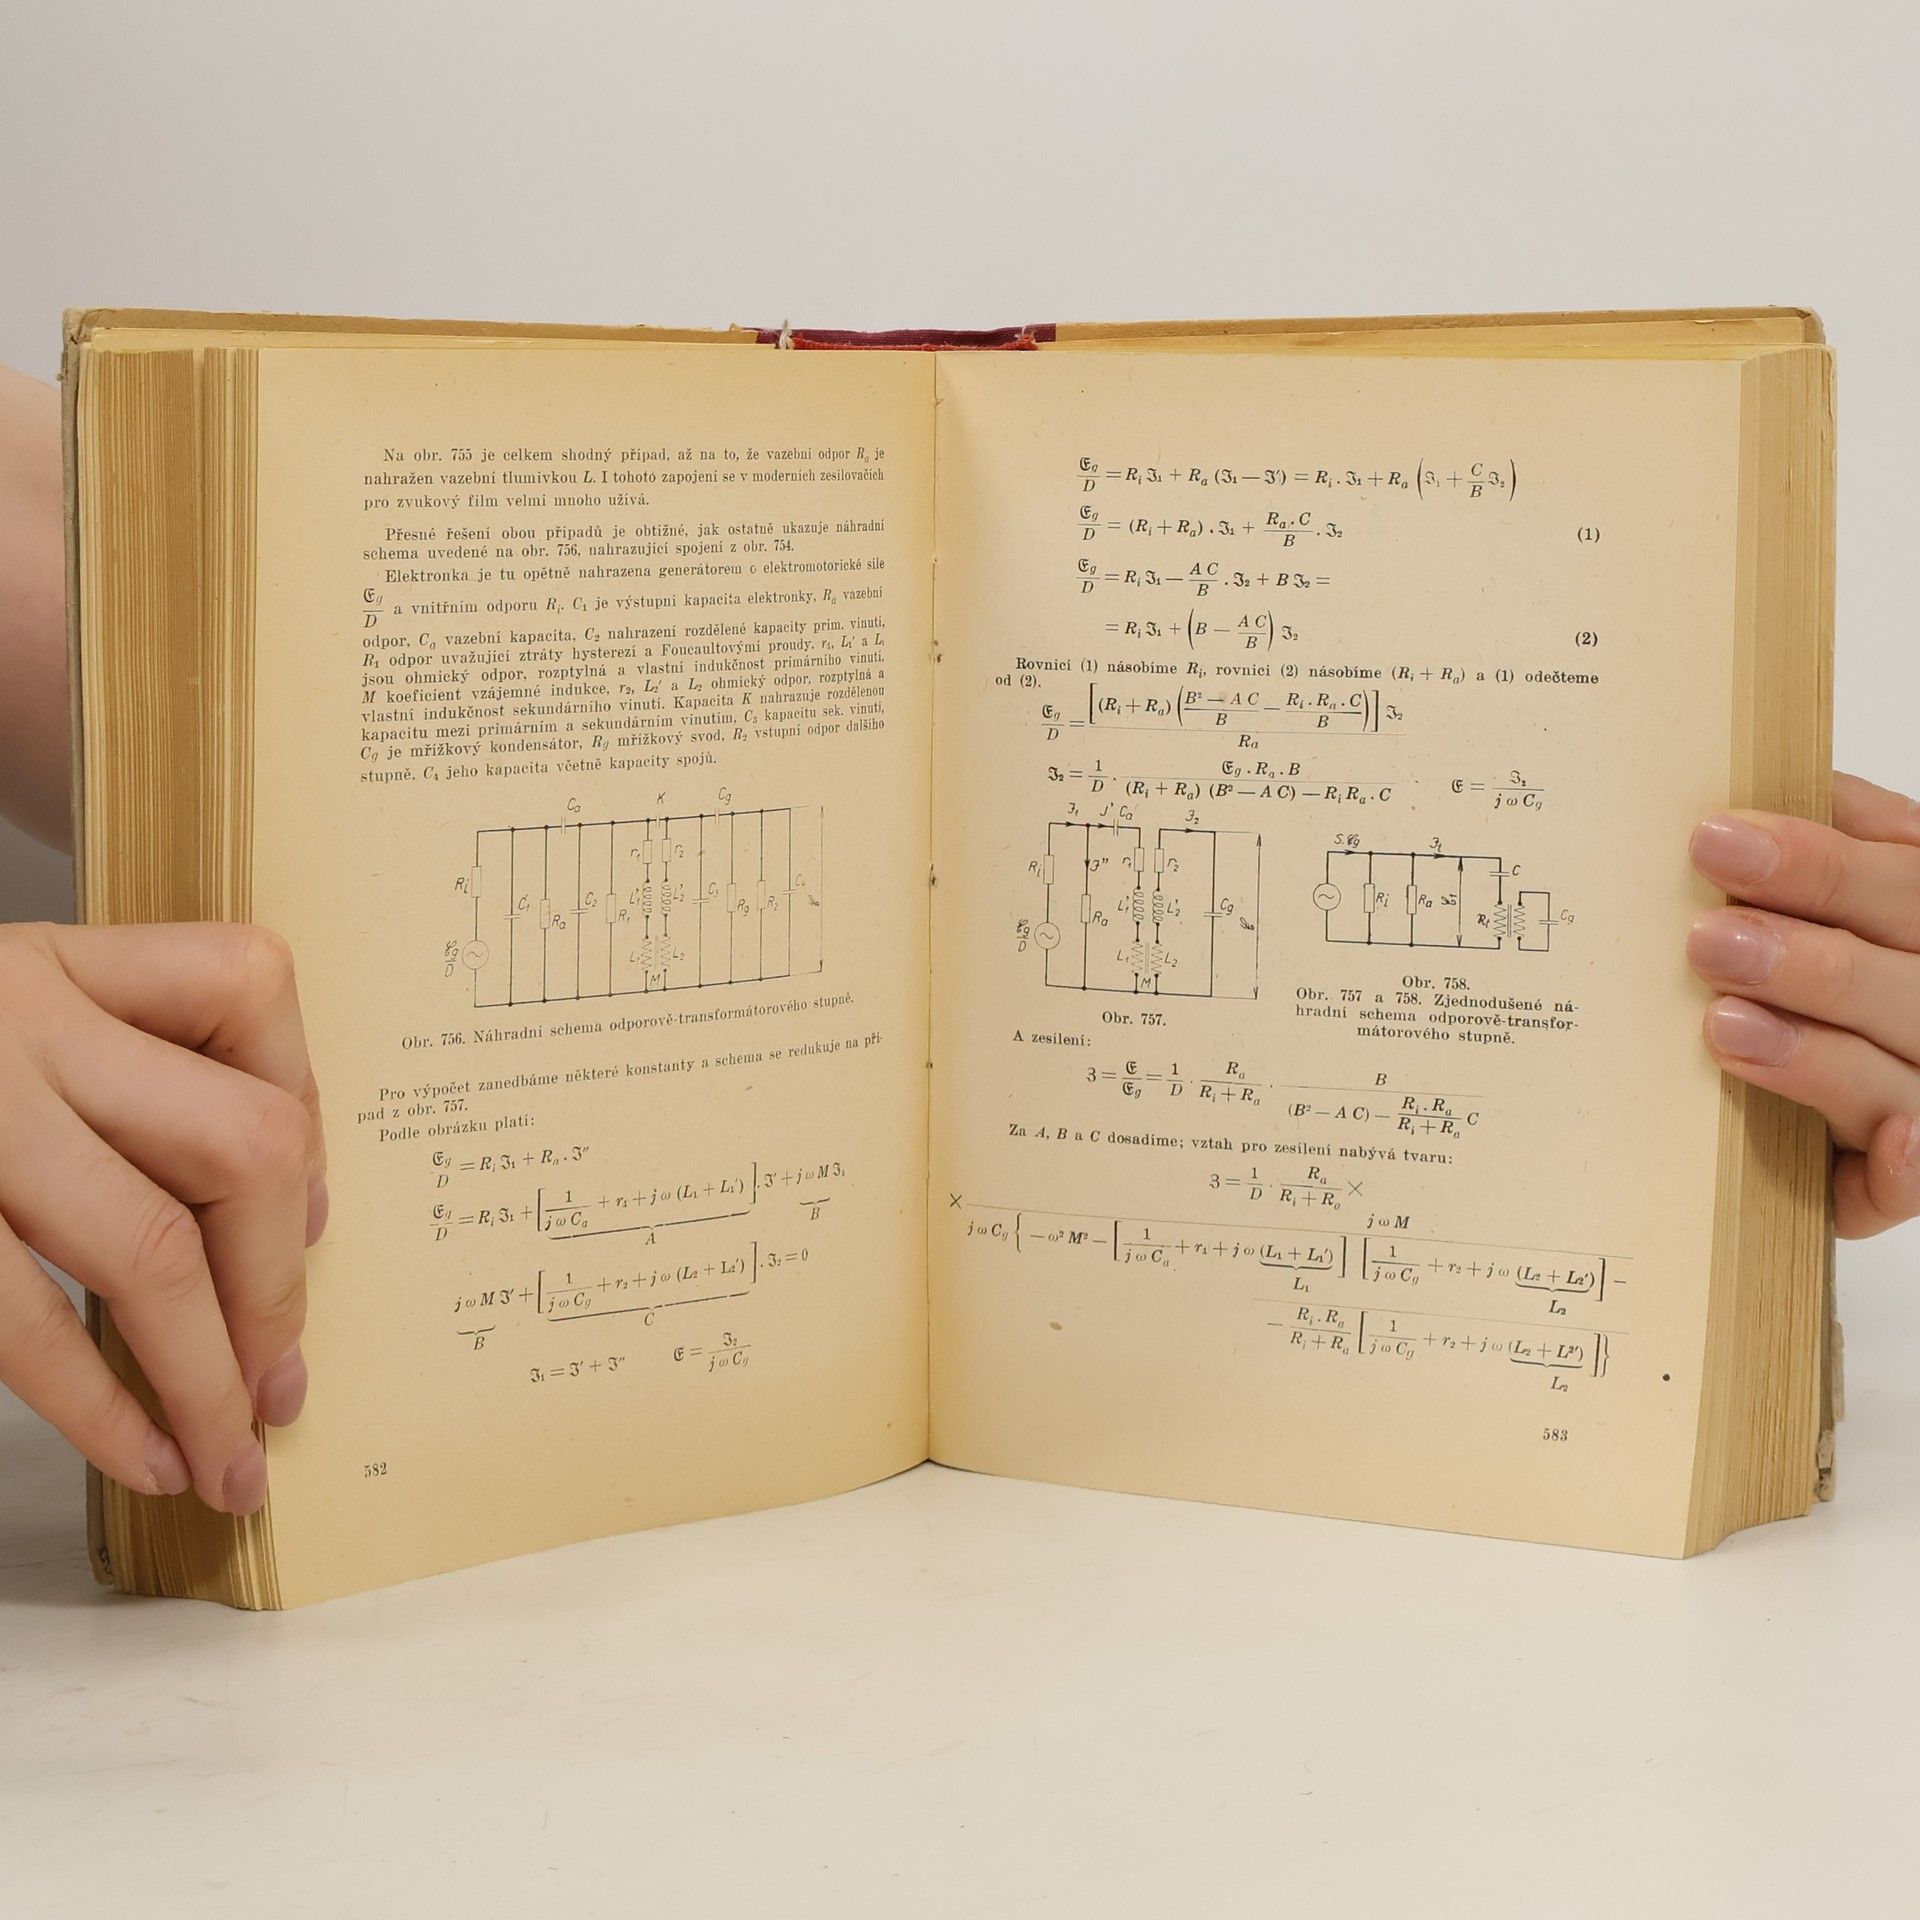 Na obr. 755 je celkem shodný případ, až na to, že vazební odpor Rₐ je
nahražen vazební tlumivkou L. I tohoto zapojení se v moderních zesilovačích
pro zvukový film velmi mnoho užívá.
Přesné řešení obou případů je obtížné, jak ostatně ukazuje náhradní
schema uvedené na obr. 756, nahrazující spojení z obr. 754.
Elektronka je tu opětně nahrazena generátorem o elektromotorické síle
𝔈g/D a vnitřním odporu Rᵢ. C₁ je výstupní kapacita elektronky, Rₐ vazební
odpor, Cₐ vazební kapacita, C₂ nahrazení rozdělené kapacity prim. vinutí,
R₁ odpor uvažující ztráty hysterezí a Foucaultovými proudy. r₁, L₁′ a L₁
jsou ohmický odpor, rozptylná a vlastní indukčnost primárního vinutí.
M koeficient vzájemné indukce, r₂, L₂′ a L₂ ohmický odpor, rozptylná a
vlastní indukčnost sekundárního vinutí. Kapacita K nahrazuje rozdělenou
kapacitu mezi primárním a sekundárním vinutím, C₃ kapacitu sek. vinutí,
Cg je mřížkový kondensátor, Rg mřížkový svod, R₂ vstupní odpor dalšího
stupně, C₄ jeho kapacita včetně kapacity spojů.
Ca K Cg
Ri C₁ Ra C₂ R₁ r₁ r₂ L₁′ L₂′ L₁ L₂ M C₃ Rg R₂ C₄
𝔈g/D
Obr. 756. Náhradní schema odporově-transformátorového stupně.
Pro výpočet zanedbáme některé konstanty a schema se redukuje na pří-
pad z obr. 757.
Podle obrázku platí:
𝔈g/D = Rᵢ ℑ₁ + Rₐ . ℑ″
𝔈g/D = Rᵢ ℑ₁ + [1/(j ω Cₐ) + r₁ + j ω (L₁ + L₁′)] . ℑ′ + j ω M ℑ₂
A B
j ω M ℑ′ + [1/(j ω Cg) + r₂ + j ω (L₂ + L₂′)] . ℑ₂ = 0
B C
ℑ₁ = ℑ′ + ℑ″ 𝔈 = ℑ₂/(j ω Cg)
582
𝔈g/D = Rᵢ ℑ₁ + Rₐ (ℑ₁ — ℑ′) = Rᵢ . ℑ₁ + Rₐ (ℑ₁ + C/B ℑ₂)
𝔈g/D = (Rᵢ + Rₐ) . ℑ₁ + (Rₐ . C)/B . ℑ₂ (1)
𝔈g/D = Rᵢ ℑ₁ — (A C)/B . ℑ₂ + B ℑ₂ =
= Rᵢ ℑ₁ + (B — (A C)/B) ℑ₂ (2)
Rovnicí (1) násobíme Rᵢ, rovnici (2) násobíme (Rᵢ + Rₐ) a (1) odečteme
od (2).
𝔈g/D = [(Rᵢ + Rₐ) ((B² — A C)/B — (Rᵢ . Rₐ . C)/B)] ℑ₂ / Ra
ℑ₂ = 1/D . (𝔈g . Rₐ . B)/((Rᵢ + Rₐ) (B² — A C) — Rᵢ Rₐ . C) 𝔈 = ℑ₂/(j ω Cg)
ℑ₁ J′ Ca ℑ₂
Ri ℑ″ Ra r₁ r₂ L₁′ L₂′ L₁ L₂ M Cg
𝔈g/D
Obr. 757.
S.𝔈g ℑ₁ C
Ri Ra Rt Cg
Obr. 758.
Obr. 757 a 758. Zjednodušené ná-
hradní schema odporově-transfor-
mátorového stupně.
A zesílení:
3 = 𝔈/𝔈g = 1/D . Rₐ/(Rᵢ + Rₐ) . B/((B² — A C) — (Rᵢ . Rₐ)/(Rᵢ + Rₐ) C)
Za A, B a C dosadíme; vztah pro zesílení nabývá tvaru:
3 = 1/D . Rₐ/(Rᵢ + Rₐ) ×
× j ω M
j ω Cg { — ω² M² — [1/(j ω Cₐ) + r₁ + j ω (L₁ + L₁′)] [1/(j ω Cg) + r₂ + j ω (L₂ + L₂′)] —
L₁ L₂
— (Rᵢ . Rₐ)/(Rᵢ + Rₐ) [1/(j ω Cg) + r₂ + j ω (L₂ + L²′)]}
L₂
583